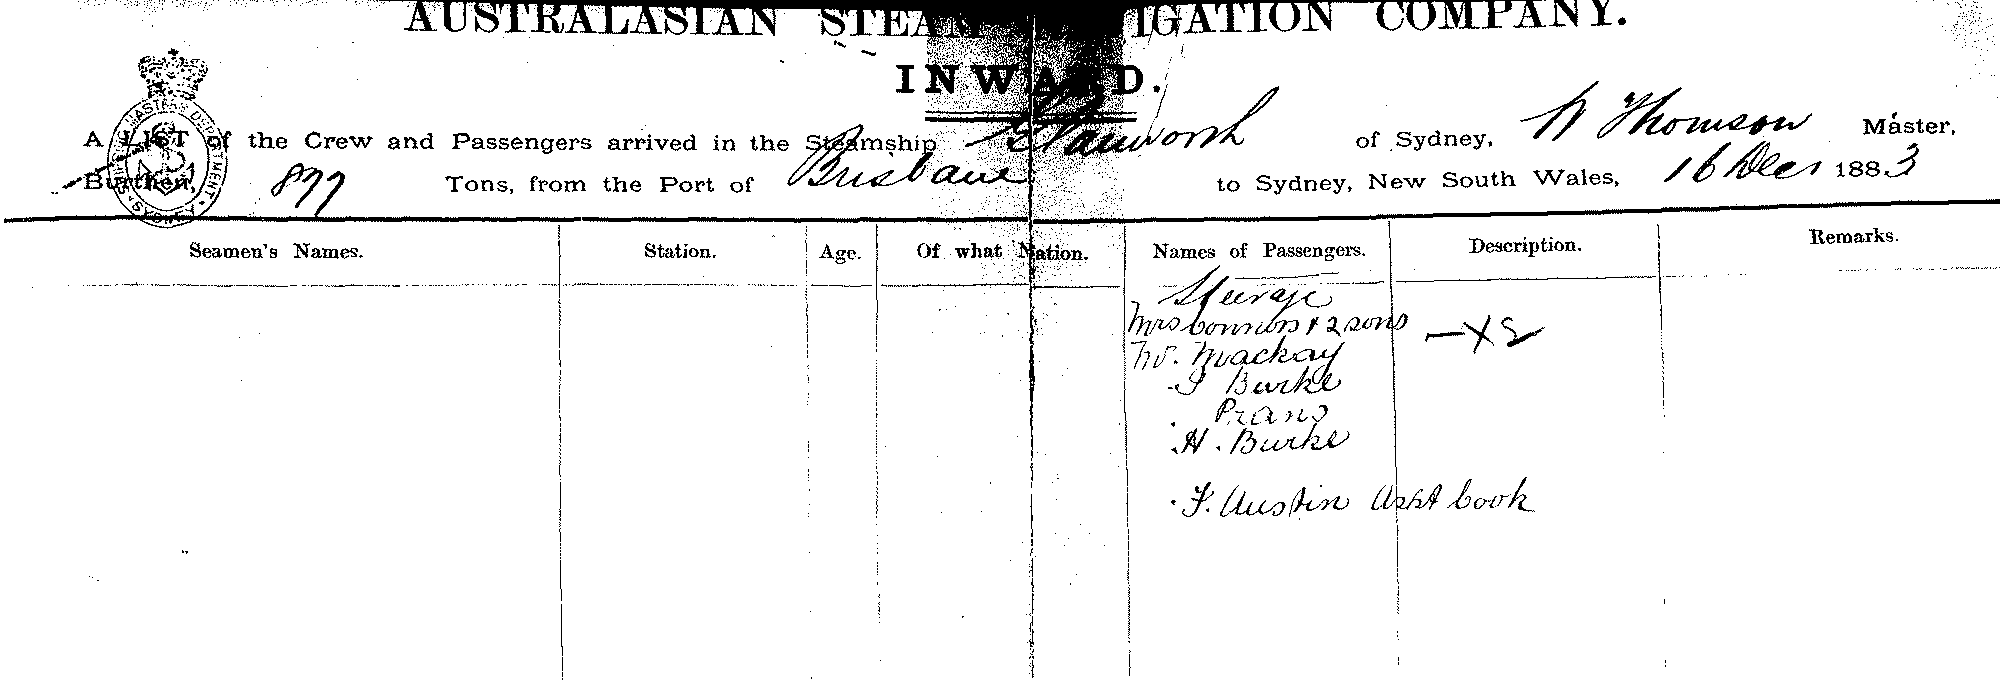 AUSTRALASIAN STEAM NAVIGATION COMPANY.
INWARD.
A LIST of the Crew and Passengers arrived in the Steamship Elamworth of Sydney, W Thomson Master,
Burthen, 877 Tons, from the Port of Brisbane to Sydney, New South Wales, 16 Dec 1883
Seamen's Names. Station. Age. Of what Nation. Names of Passengers. Description. Remarks.
Steerage
Mrs Connors & 2 sons – X 2
Mr. Mackay
Burke
H. Burke
F. Austin Asst Cook
SHIPPING MASTER'S DEPARTMENT
SYDNEY